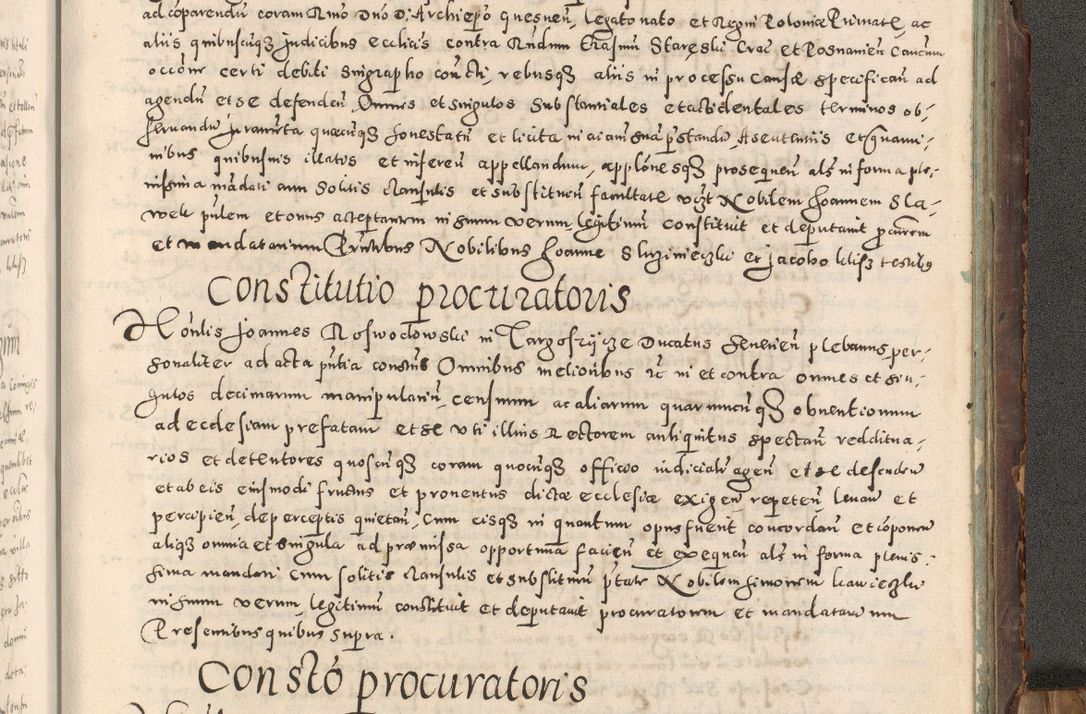 ad cōparendū coram Rmo Dno D: Archiepō Gnesneñ, legato nato et Regni Poloniæ Primate, ac
aliis quibuscūqꝫ judicibus ecclīcis contra Rndum Erasmū Stareski Crac et Posnanieñ Canonicum
occōne certi debiti singrapho con̄cti, rebusqꝫ aliis in processu causæ specificañ ad
agendū et se defendeñ, Omnes et singulos substantiales et accidentales terminos ob-
servandū juramēta quæcūqꝫ honestatū et licita in aīam suā pr̄standū, A sententiis et gravami-
nibus quibusvis illatis et infereñ appellandum, applōnesqꝫ prosequeñ als in forma ple-
nissima mādati cum solitis clausulis et substitueñ facultate vzt Nobilem Joannem Sla-
wek pn̄tem et onus acceptantem in suum verum, legitimū constituit et deputavit procurem
et mandatarium Pr̄ntibus Nobilibus Joanne Sluzinieczki et Jacobo Klisz testibꝫ
Constitutio procuratoris
Honlis Joannes Roswodowski in Targoszycze Ducatus Severieñ plebanus per-
sonaliter ad acta pn̄tia constūs Omnibus melioribus &c in et contra omnes et sin-
gulos decimarum manipulariū, censuum ac aliarum quarumcūqꝫ obventionum
ad ecclesiam prefatam et se uti illius Rectorem antiquitus spectañ reddituа-
rios et detentores quoscūqꝫ coram quocūqꝫ officio iudicialr̄ ageñ et se defendeñ
et ab eis eiusmodi fructus et proventus dictæ ecclesiæ exigeñ, repeteñ, levañ et
percipieñ, de perceptis quietañ, Cum eisqꝫ in quantum opus fuerit concordañ et cōponeñ
aliaqꝫ omnia et singula ad præmissa opportuna facieñ et exequeñ als in forma plenis-
sima mandati cum solitis clausulis et substitueñ pr̄tate Nobilem Simonem
in suum verum, legitimū constituit et deputavit procuratorem et mandatarium
Presentibus quibus supra.
Constō procuratoris